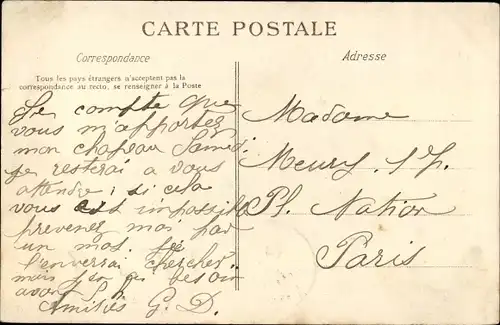 CARTE POSTALE
Correspondance
Tous les pays étrangers n'acceptent pas la
correspondance au recto, se renseigner à la Poste
Je compte que
vous m'apportez
mon chapeau Samedi
je resterai a vous
attendre; si cela
vous est impossible
prevenez moi par
un mot. Je
l'enverrai chercher
mais j'en ai besoin
avant
Amitiés G. D.
Adresse
Madame
Meury
Pl. Nation
Paris